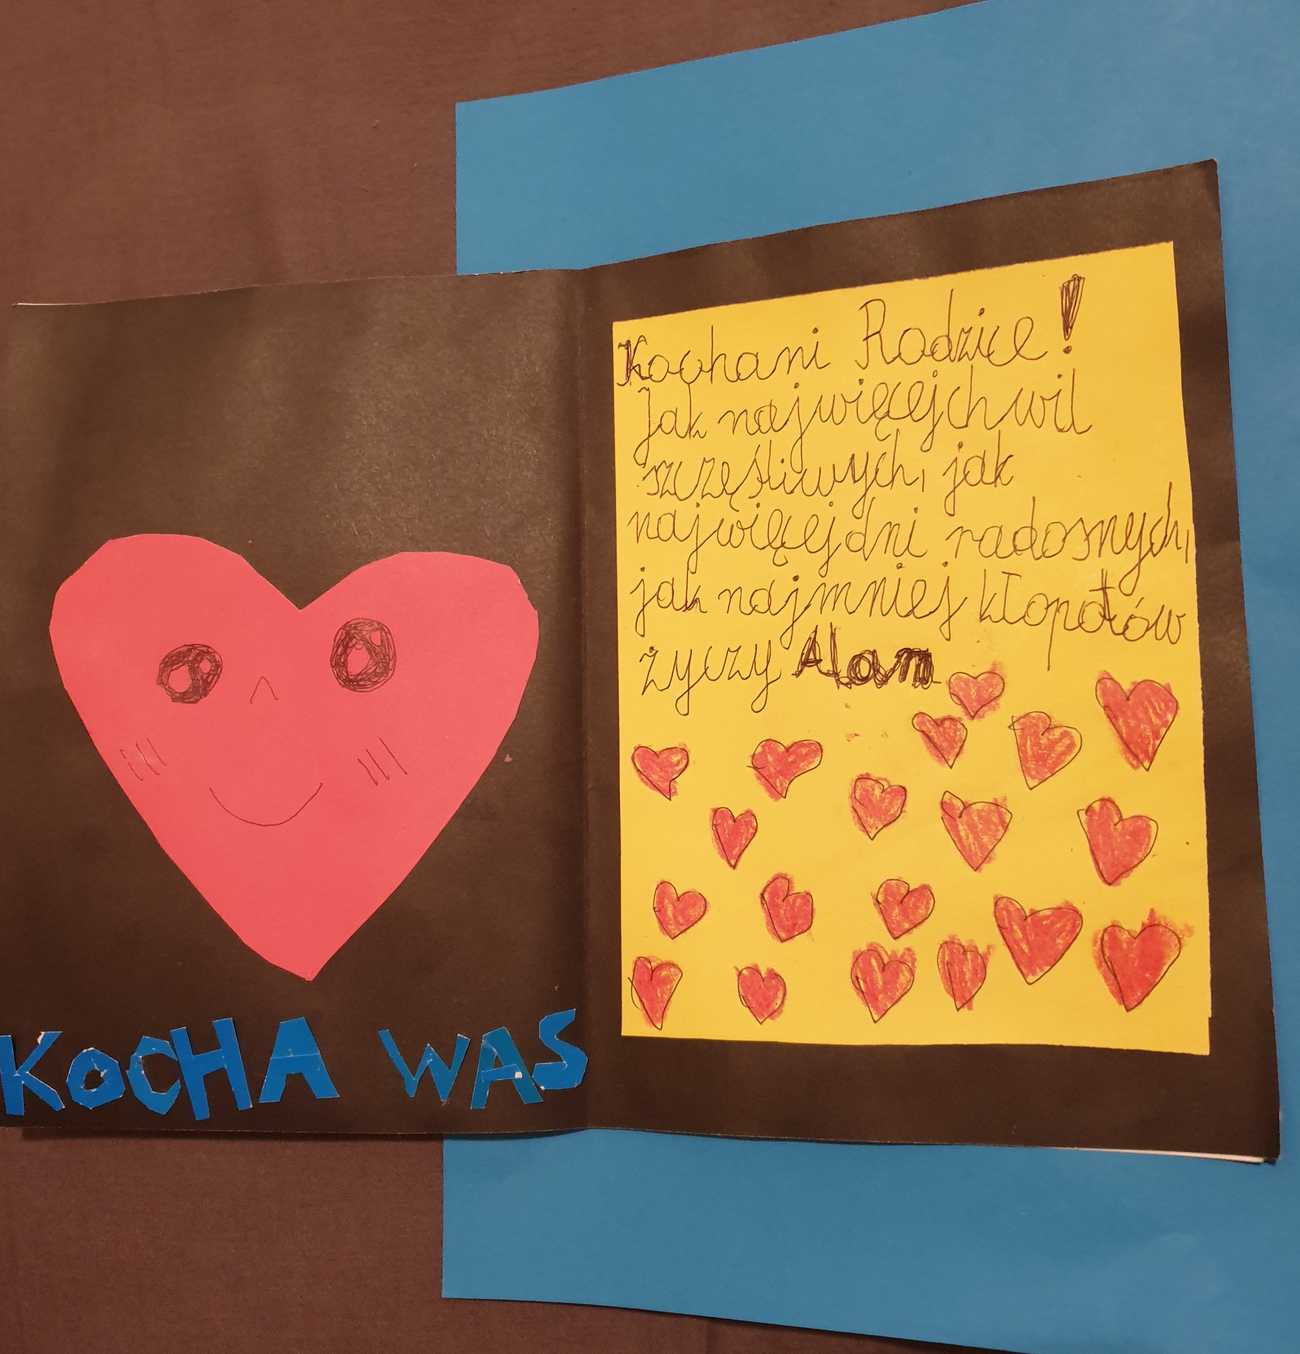 KOCHA WAS
Kochani Rodzice!
Jak najwięcej chwil
szczęśliwych, jak
najwięcej dni radosnych,
jak najmniej kłopotów
życzy Alan